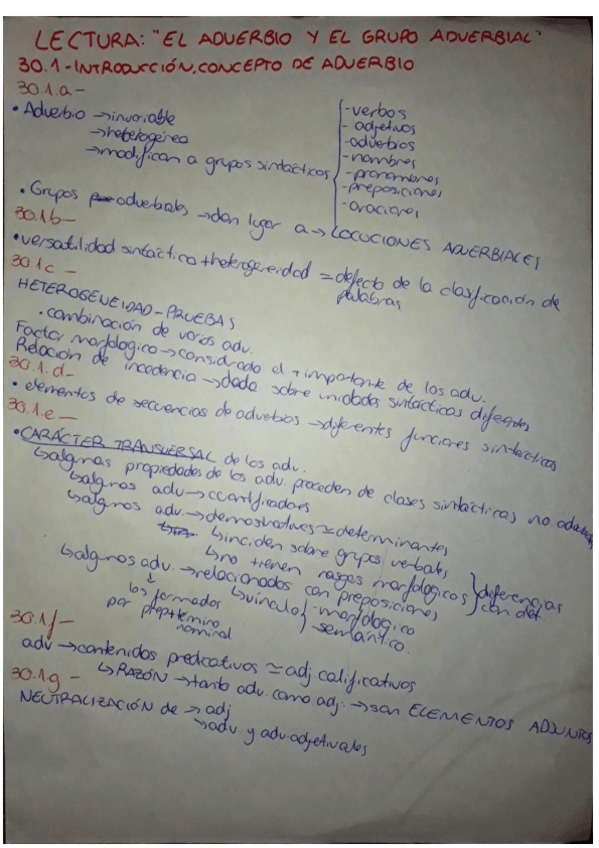 LECTURA: "EL ADVERBIO Y EL GRUPO ADVERBIAL"
30.1-INTRODUCCIÓN, CONCEPTO DE ADVERBIO
30.1.a-
• Adverbio → invariable
→ heterogéneo
→ modifican a grupos sintácticos
- verbos
- adjetivos
- adverbios
- nombres
- pronombres
- preposiciones
- oraciones
• Grupos adverbiales → dan lugar a → LOCUCIONES ADVERBIALES
30.1b-
• versatilidad sintáctica + heterogeneidad = defecto de la clasificación de
palabras
30.1c-
HETEROGENEIDAD - PRUEBAS
• combinación de varios adv.
Factor morfológico → considerado el + importante de los adv.
Relación de incidencia → dada sobre unidades sintácticas diferentes
30.1.d-
• elementos de secuencias de adverbios → diferentes funciones sintácticas
30.1.e-
• CARÁCTER TRANSVERSAL de los adv.
↳ algunas propiedades de los adv. proceden de clases sintácticas no
↳ algunos adv → cuantificadores
↳ algunos adv. → demostrativos ≃ determinantes
↳ inciden sobre grupos verbales
↳ no tienen rasgos morfológicos } diferencias
con det.
↳ algunos adv. → relacionados con preposiciones
↓ ↳ vínculo { - morfológico
- semántico.
los formados
por prep + término
nominal
30.1f-
adv → contenidos predicativos ≃ adj. calificativos
↳ RAZÓN → tanto adv. como adj. → son ELEMENTOS ADJUNTOS
30.1g-
NEUTRALIZACIÓN de → adj
→ adv. y adv. adjetivales